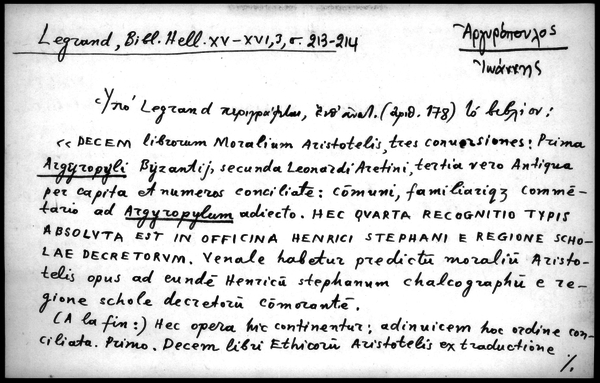 Legrand, Bibl. Hell. XV–XVI, 3, σ. 213-214
Ἀργυρόπουλος
Ἰωάννης
Ὑπὸ Legrand περιγράφεται, ἐνθ' ἀνωτ. (ἀριθ. 178) τὸ βιβλίον:
« DECEM librorum Moralium Aristotelis, tres conuersiones: Prima
Argyropyli Byzantij, secunda Leonardi Aretini, tertia vero Antiqua
per capita et numeros conciliate: cōmuni, familiariqȝ commē-
tario ad Argyropylum adiecto. HEC QVARTA RECOGNITIO TYPIS
ABSOLVTA EST IN OFFICINA HENRICI STEPHANI E REGIONE SCHO-
LAE DECRETORVM. Venale habetur predictū moraliū Aristo-
telis opus ad eundē Henricū stephanum chalcographū e re-
gione schole decretorū cōmorantē.
(A la fin:) Hec opera hic continentur; adinuicem hoc ordine con-
ciliata. Primo. Decem libri Ethicorū Aristotelis ex traductione
./.